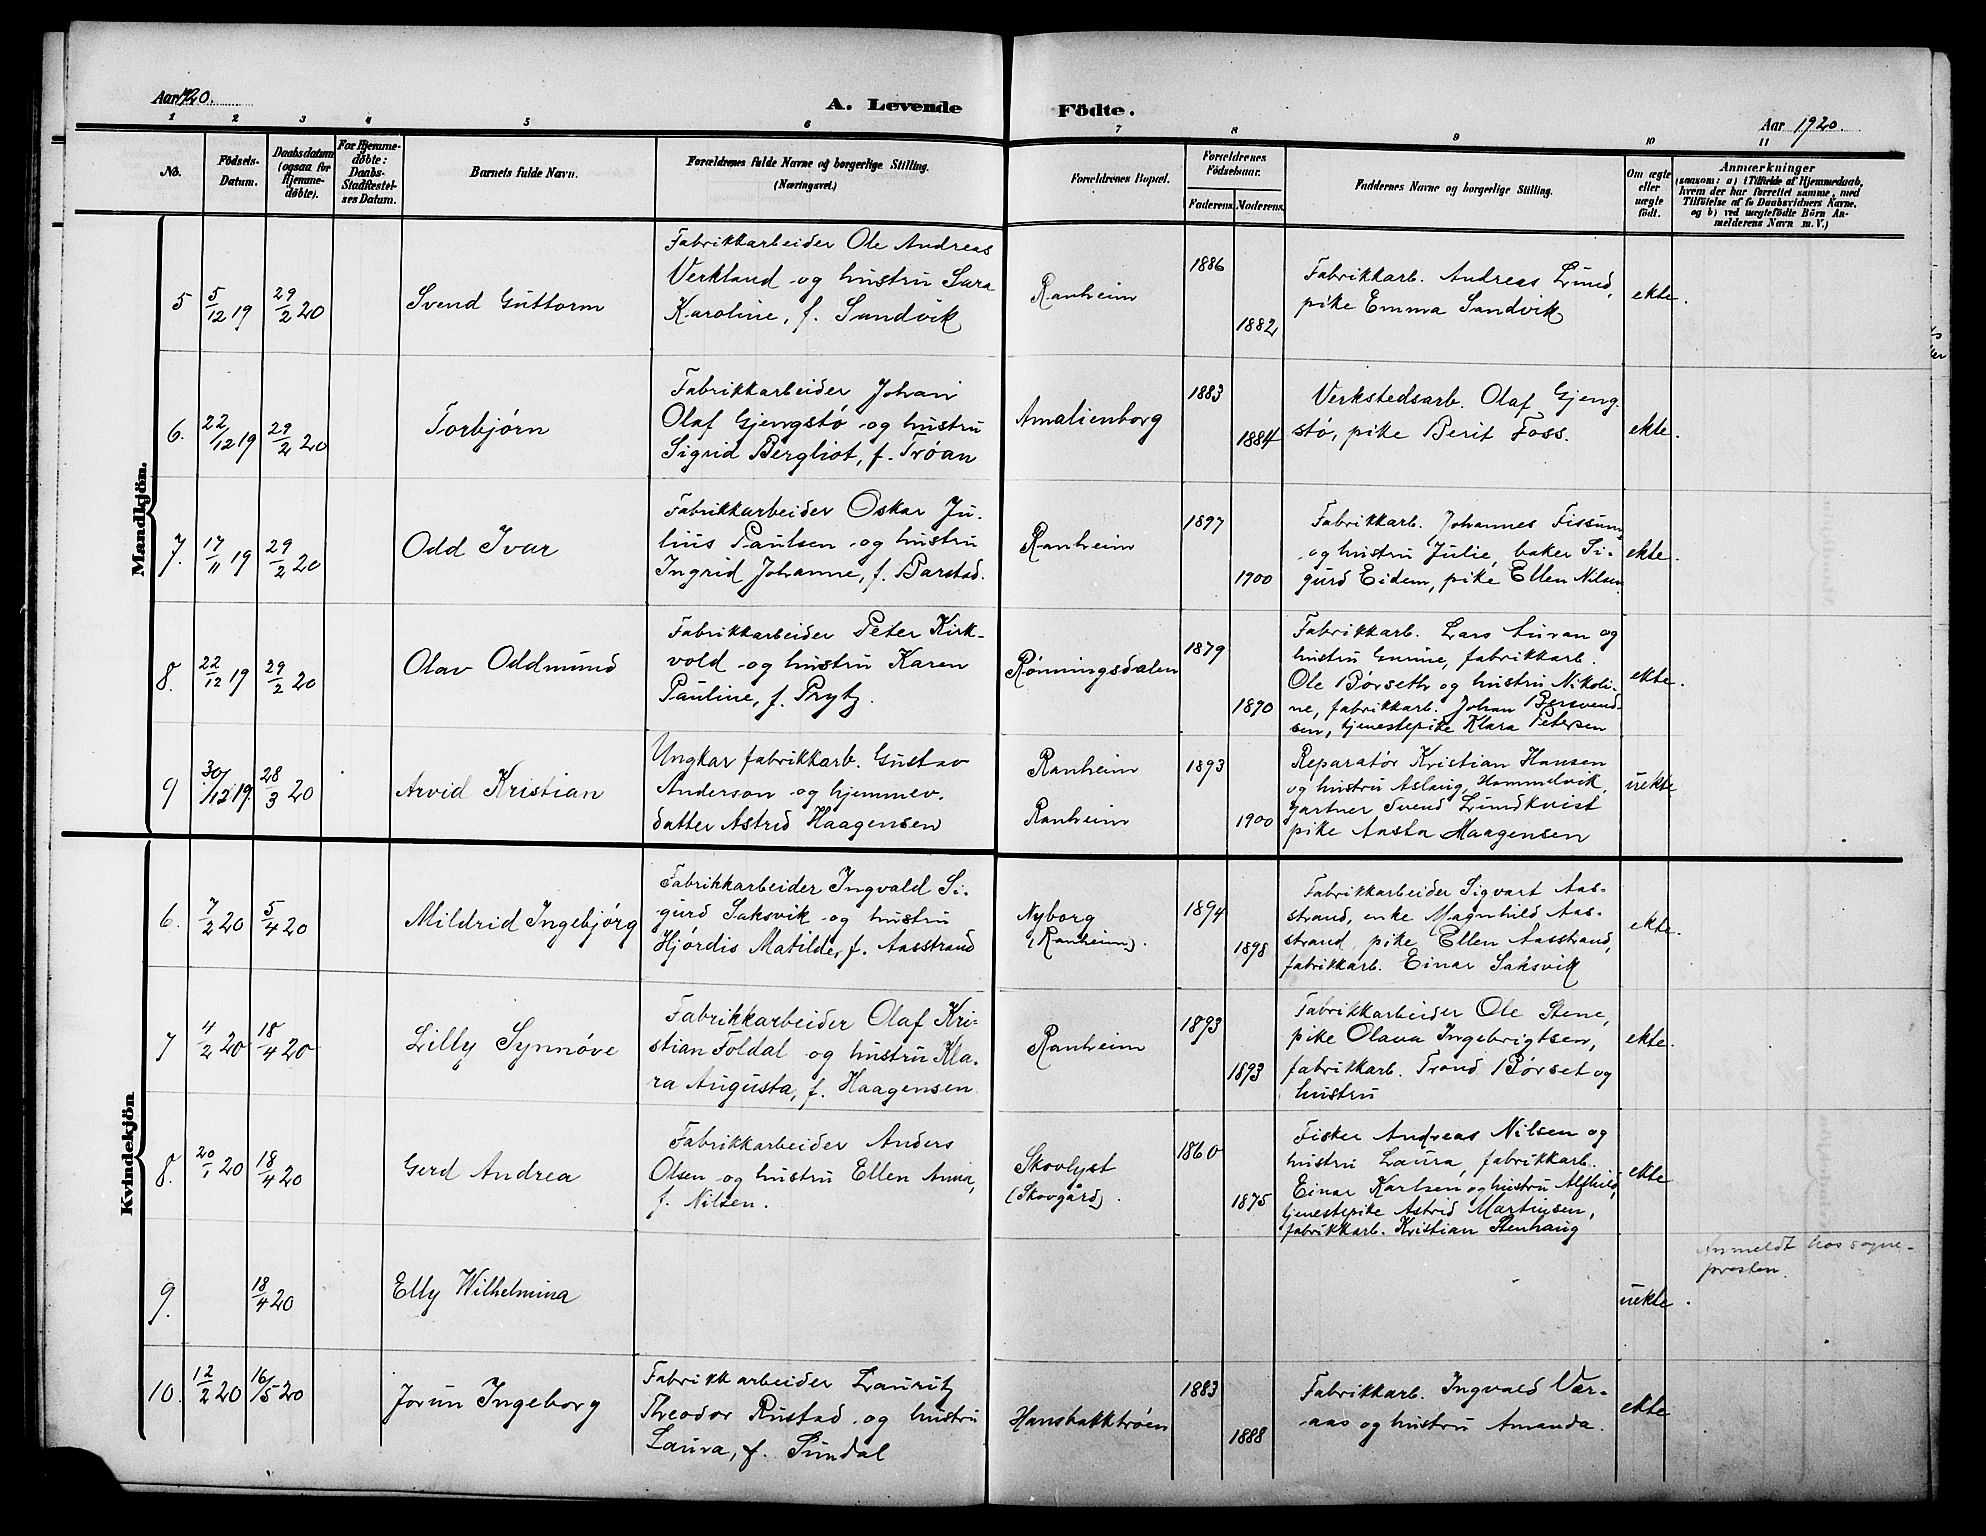 Aar 1920.
A. Levende Födte.
Aar 1920.
1 2 3 4 5 6 7 8 9 10 11
No.
Födsels-
Datum.
Daabsdatum
(ogsaa for
Hjemme-
döbte).
For Hjemme-
döbte:
Daabs-
Stadfæstel-
ses Datum.
Barnets fulde Navn.
Forældrenes fulde Navne og borgerlige Stilling.
(Næringsvei.)
Forældrenes Bopæl.
Forældrenes
Födselsaar.
Faderens.
Moderens.
Faddernes Navne og borgerlige Stilling.
Om ægte
eller
uægte
født.
Anmærkninger
(saasom: a) i Tilfælde af Hjemmedaab,
hvem der har forrettet samme, med
Tilföielse af to Daabsvidners Navne.
og b) ved uægtefödte Börn An-
melderens Navn m. V.)
Mandkjön.
5
5/12 19
29/2 20
Svend Guttorm
Fabrikkarbeider Ole Andreas
Verkland og hustru Sara
Karoline, f. Sandvik
Ranheim
1886
1882
Fabrikkarb. Andreas Lund,
pike Emma Sandvik
ekte.
6.
22/12 19
29/2 20
Torbjørn
Fabrikkarbeider Johan
Olaf Gjengstø og hustru
Sigrid Bergliot, f. Trøan
Amalienborg
1883
1884
Verkstedsarb. Olaf Gjeng-
stø, pike Berit Foss.
ekte.
7.
17/11 19
29/2 20
Odd Ivar
Fabrikkarbeider Oskar Ju-
lius Paulsen og hustru
Ingrid Johanne, f. Barstad.
Ranheim
1897
1900
Fabrikkarb. Johannes Fissum
og hustru Julie, baker Si-
gurd Eidem, pike Ellen Nilsen
ekte.
8.
22/12 19
29/2 20
Olav Oddmund
Fabrikkarbeider Peter Kirk-
vold og hustru Karen
Pauline, f. Prytz.
Rønningsdalen
1879
1890
Fabrikkarb. Lars Auran og
hustru Gunne, fabrikkarb.
Ole Børseth og hustru Nikoli-
ne, fabrikkarb. Johan Bersvend-
sen, tjenestepike Klara Petersen
ekte.
9
30/12 19.
28/3 20
Arvid Kristian
Ungkar fabrikkarb. Gustav
Anderson og hjemmev.
datter Astrid Haagensen
Ranheim
Ranheim
1893
1900
Reparatør Kristian Hansen
og hustru Aslaug, Hommelvik,
gartner Svend Lundkvist
pike Aasta Haagensen
uekte
Kvindekjön
6.
7/2 20
5/4 20
Mildrid Ingebjørg
Fabrikkarbeider Ingvald Si-
gurd Saksvik og hustru
Hjørdis Matilde, f. Aasstrand
Nyborg
(Ranheim).
1894
1898
Fabrikkarbeider Sigvart Aas-
strand, enke Magnhild Aas-
strand, pike Ellen Aasstrand,
fabrikkarb. Einar Saksvik
ekte.
7
4/2 20
18/4 20
Lilly Synnøve
Fabrikkarbeider Olaf Kri-
stian Foldal og hustru Kla-
ra Augusta, f. Haagensen
Ranheim
1893
1893
Fabrikkarbeider Ole Stene,
pike Olava Ingebrigtsen,
fabrikkarb. Trond Børset og
hustru
ekte.
8.
20/1 20
18/4 20
Gerd Andrea
Fabrikkarbeider Anders
Olsen og hustru Ellen Anna,
f. Nilsen.
Skovlyst
(Skovgård).
1860
1875
Fisker Andreas Nilsen og
hustru Laura, fabrikkarb.
Einar Karlsen og hustru Alfhild,
tjenestepike Astrid Martinsen,
fabrikkarb. Kristian Stenhaug
ekte
9.
18/4 20
Elly Wilhelmina
uekte.
Anmeldt hos sogne-
presten.
10.
12/2 20
16/5 20
Jorun Ingeborg
Fabrikkarbeider Lauritz
Theodor Rustad og hustru
Laura, f. Sundal
Hansbakktrøen
1883
1888
Fabrikkarb. Ingvald Vær-
aas og hustru Amanda.
ekte